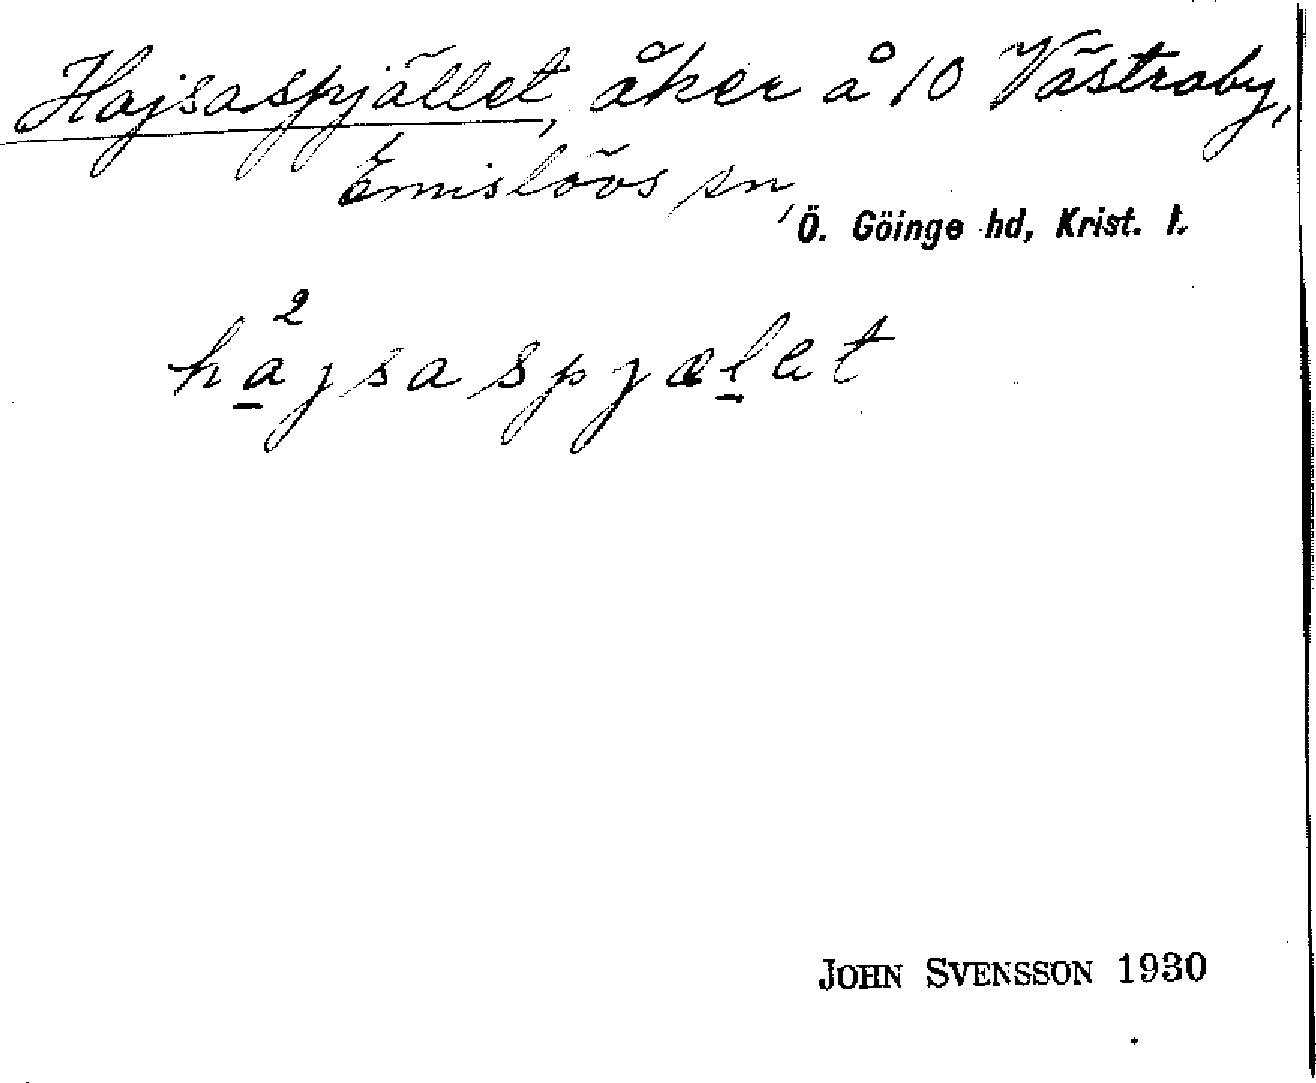 Hajsaspjället, åker å 10 Västraby,
Emislövs sn,
Ö. Göinge hd, Krist. l.
2
hajsaspjælet
JOHN SVENSSON 1930